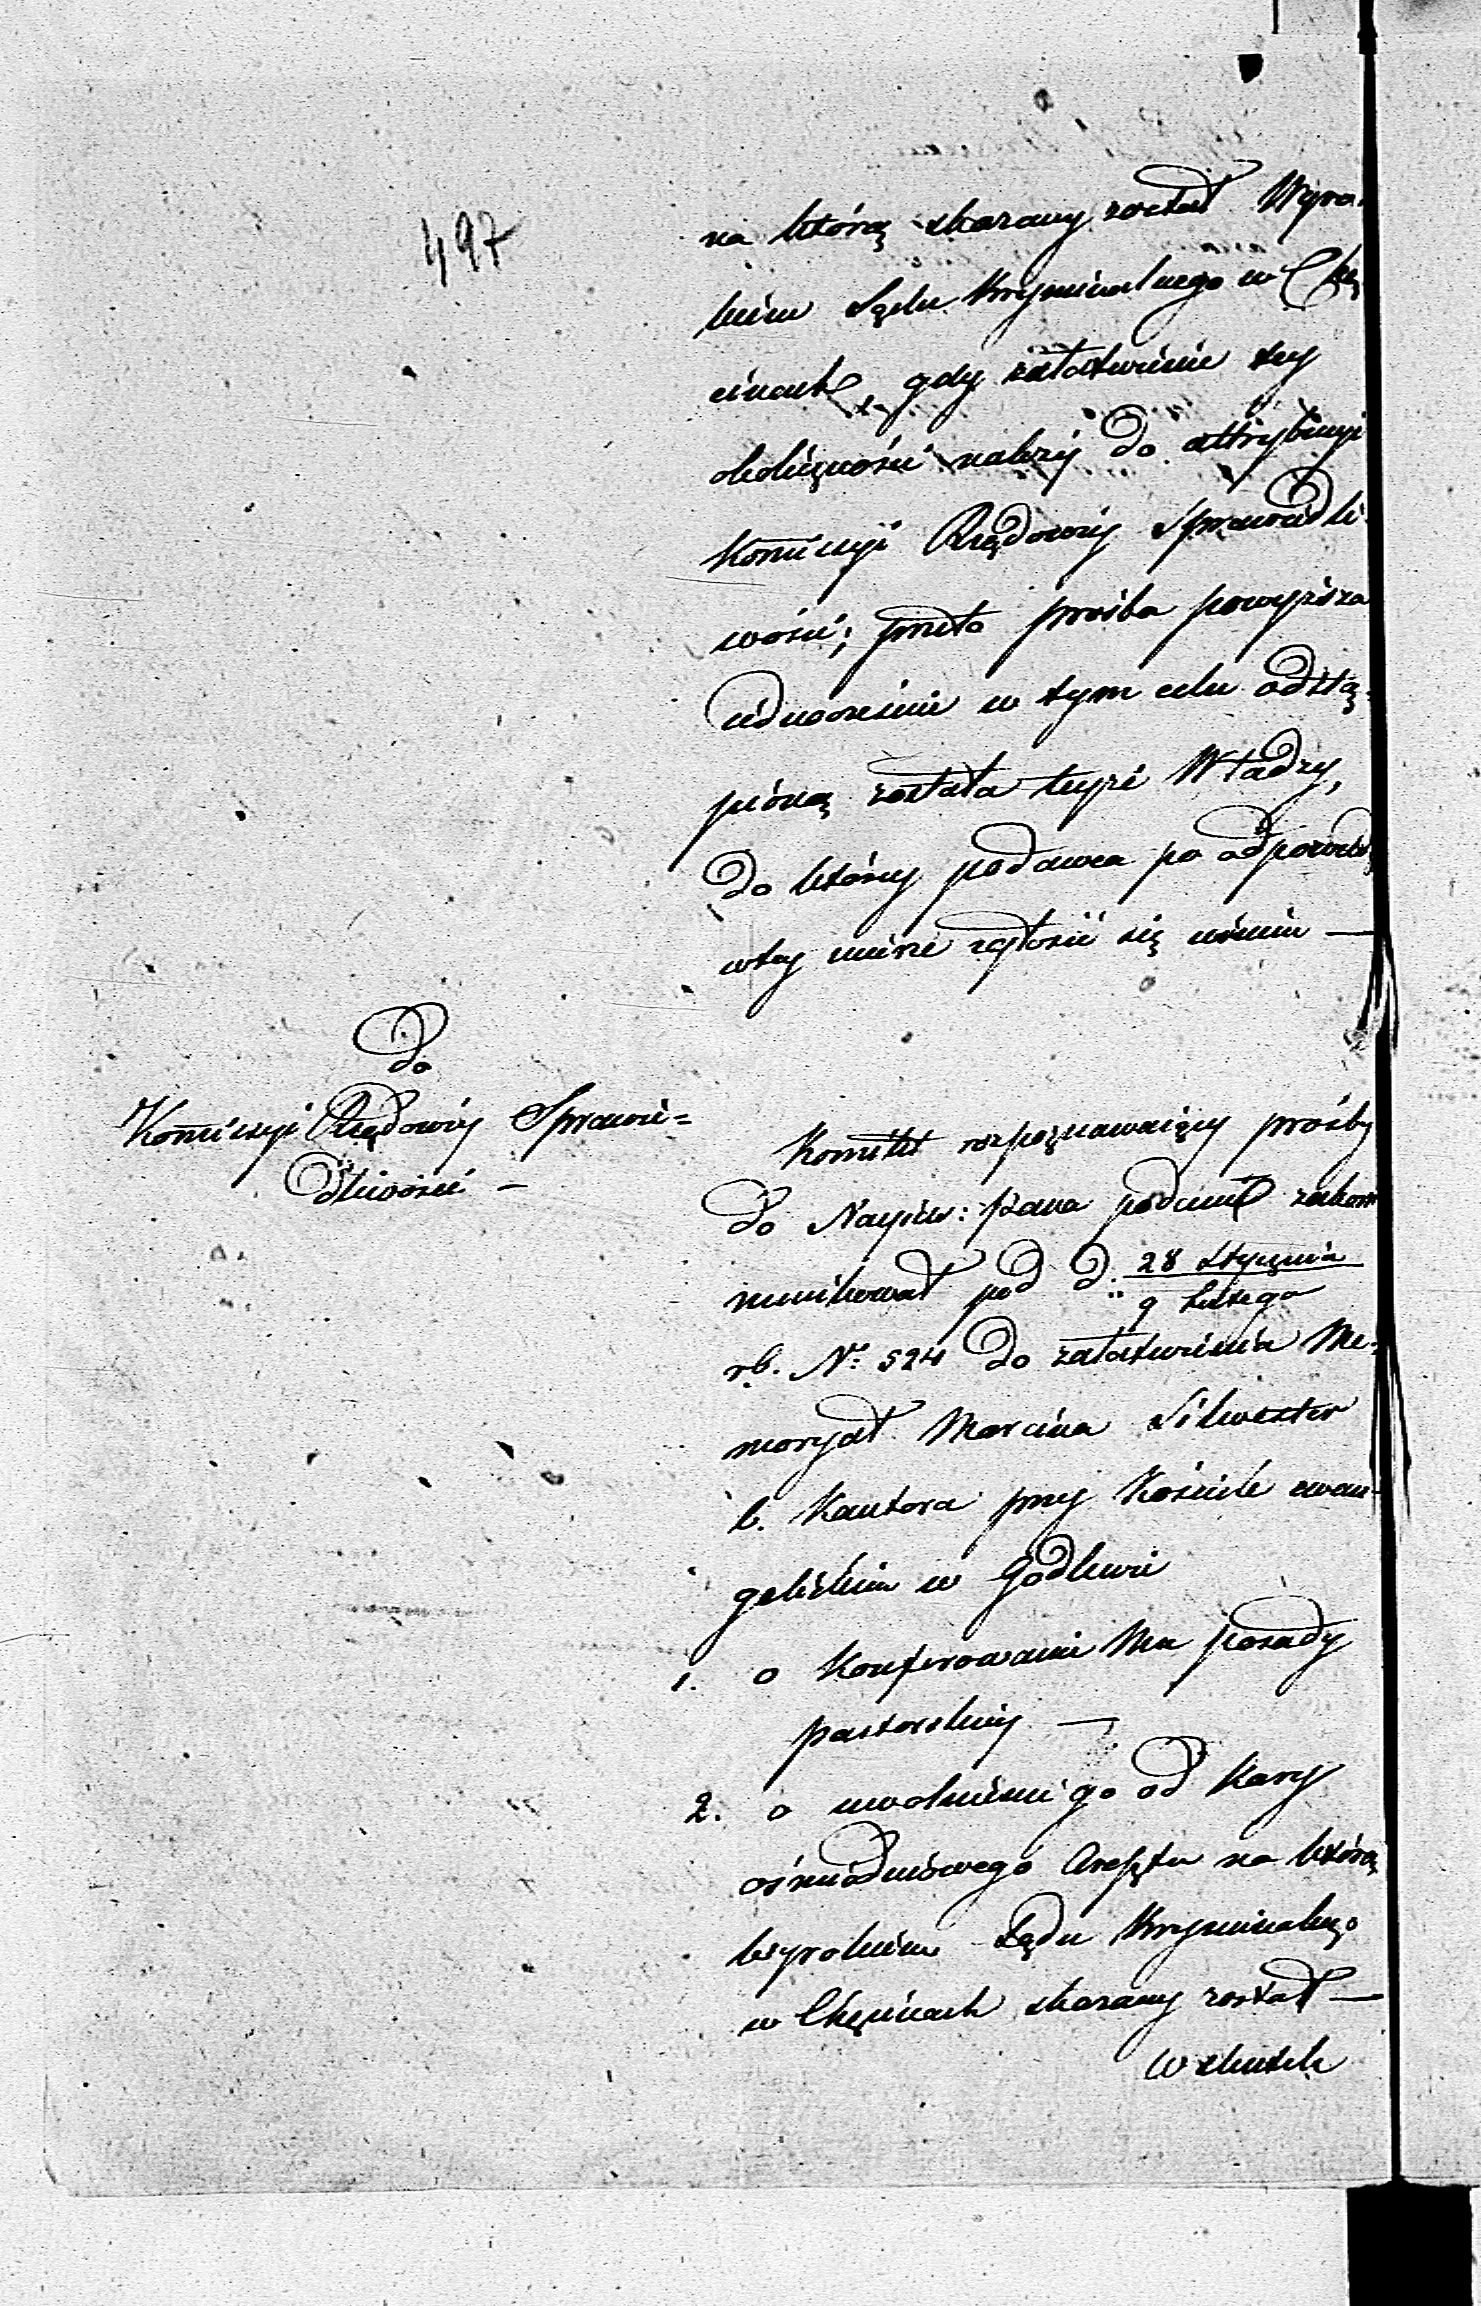 497
na którą skazany został Wyro-
kiem Sądu Kryminalnego w Chę
cinach, gdy załatwienie tey
okoliczności należy do attrybucyi
Kommissyi Rządowéy Sprawiedli-
wości; przeto prośba powyższa
iednocześnie w tym celu odstą-
pioną została teyże Władzy,
do któréy podawca po odpowiedź
w tey mierze zgłosić się winien —
Do
Kommissyi Rządowéy Sprawie=
dliwości —
Komitet rozpoznawaiący prośby
do Nayiaś: Pana podane zakom
munikował pod d. 28 Stycznia
9 Lutego
r.b. No 524 do załatwienia Me-
moryał Marcina Silwester
b. Kantora przy Kościele ewan-
gelickim w Godlewie
1. o konferowanie Mu posady
pastorskiéy —
2. o uwolnienie go od Kary
ośmiodniowego Aresztu na którą
wyrokiem Sądu Kryminalnego
w Chęcinach skazany został —
W skutek